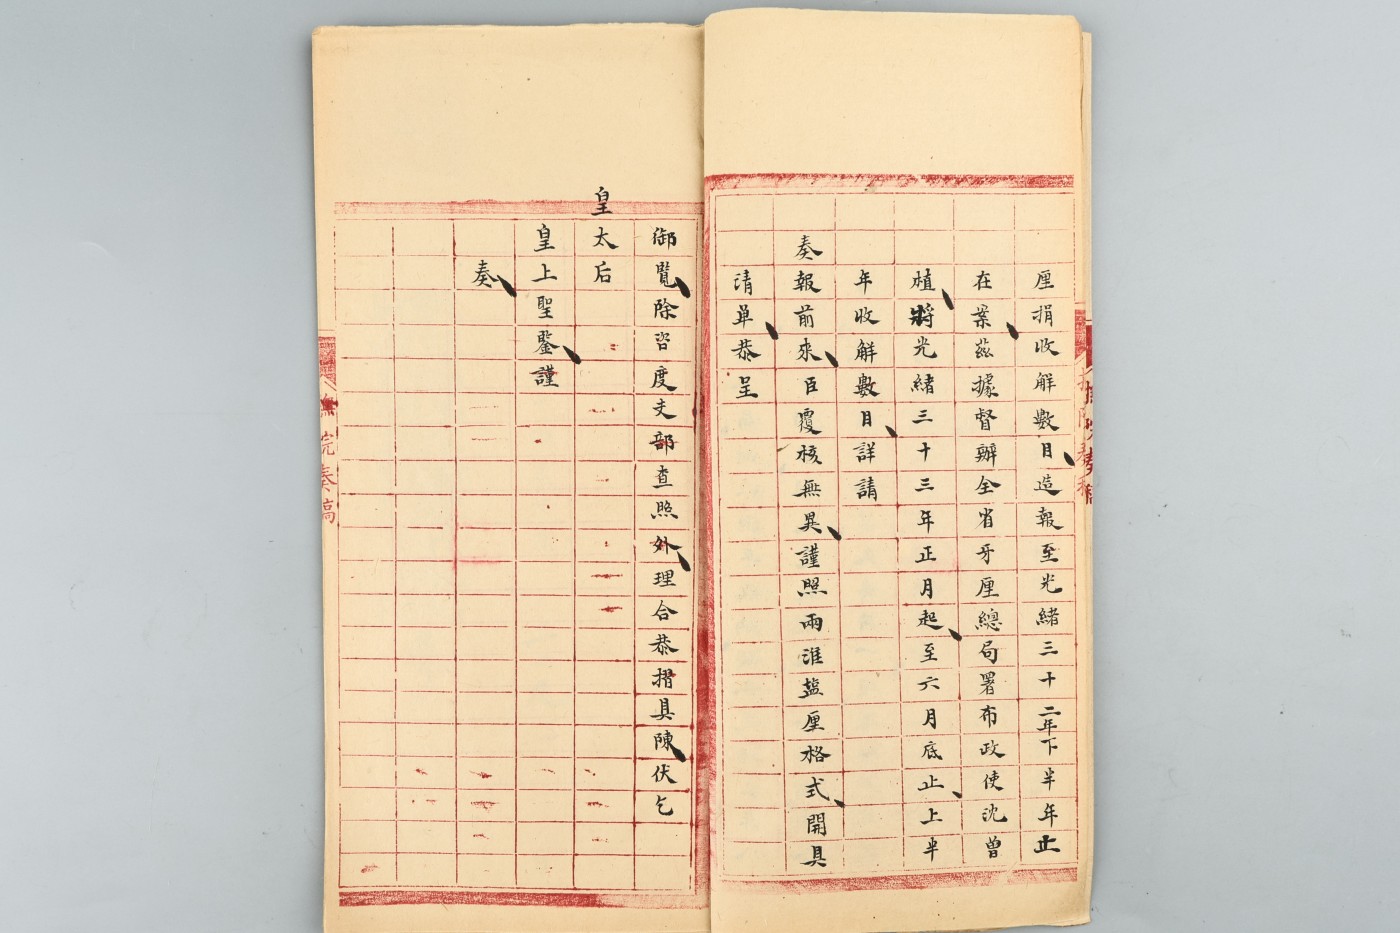 厘捐收解數目造報至光緒三十二年下半年止
在案茲據督辦全省牙厘總局署布政使沈曾
植將光緒三十三年正月起至六月底止上半
年收解數目詳請
奏報前來臣覆核無異謹照兩淮鹽厘格式開具
清單恭呈
御覽除咨度支部查照外理合恭摺具陳伏乞
皇太后
皇上聖鑒謹
奏
撫院奏稿